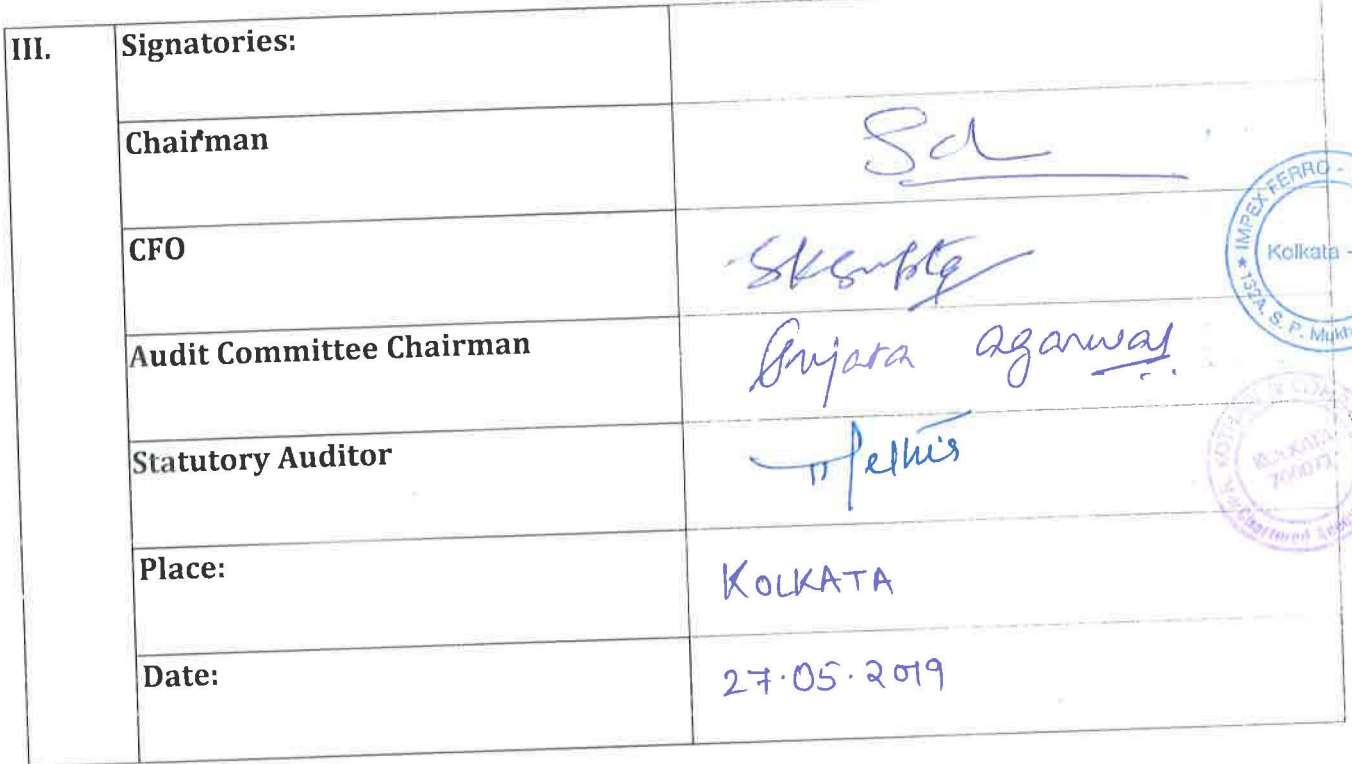 III. Signatories:
Chairman Sd
CFO SKGupta
Audit Committee Chairman Anjara agarwal
Statutory Auditor
Place: KOLKATA
Date: 27.05.2019
★ IMPEX FERRO -
Kolkata -
132A, S. P. Mukh
KOLKATA
700073
Chartered